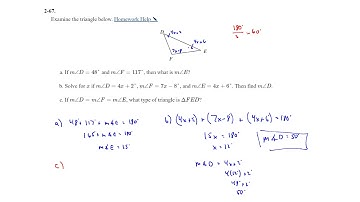 2-67.
Examine the triangle below. Homework Help
D
4x+2
4x+6
7x-8
E
F
180°
3
=60°
a. If m∠D = 48° and m∠F = 117°, then what is m∠E?
b. Solve for x if m∠D = 4x + 2°, m∠F = 7x − 8°, and m∠E = 4x + 6°. Then find m∠D.
c. If m∠D = m∠F = m∠E, what type of triangle is △FED?
a) 48° + 117° + m∡E = 180°
165 + m∡E = 180°
m∡E = 15°
b) (4x+2) + (7x-8) + (4x+6) = 180°
15x = 180°
x = 12°
m∡D = 50°
m∡D = 4x+2°
4(12)+2°
48°+2°
50°
c)